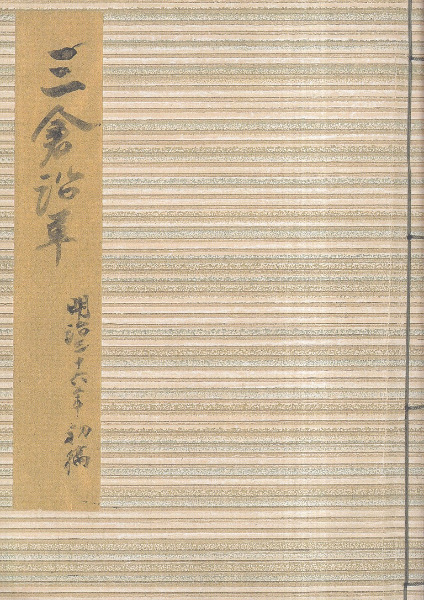 三倉沿革
明治三十六年初稿